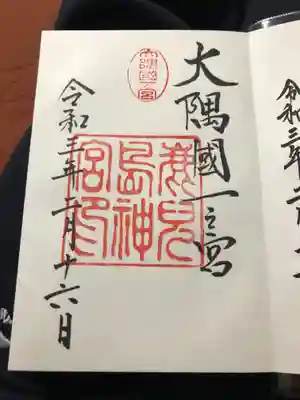 大隅國一之宮
大隅國一宮
鹿兒
島神
宮印
令和三年二月十六日
令和三年二月十